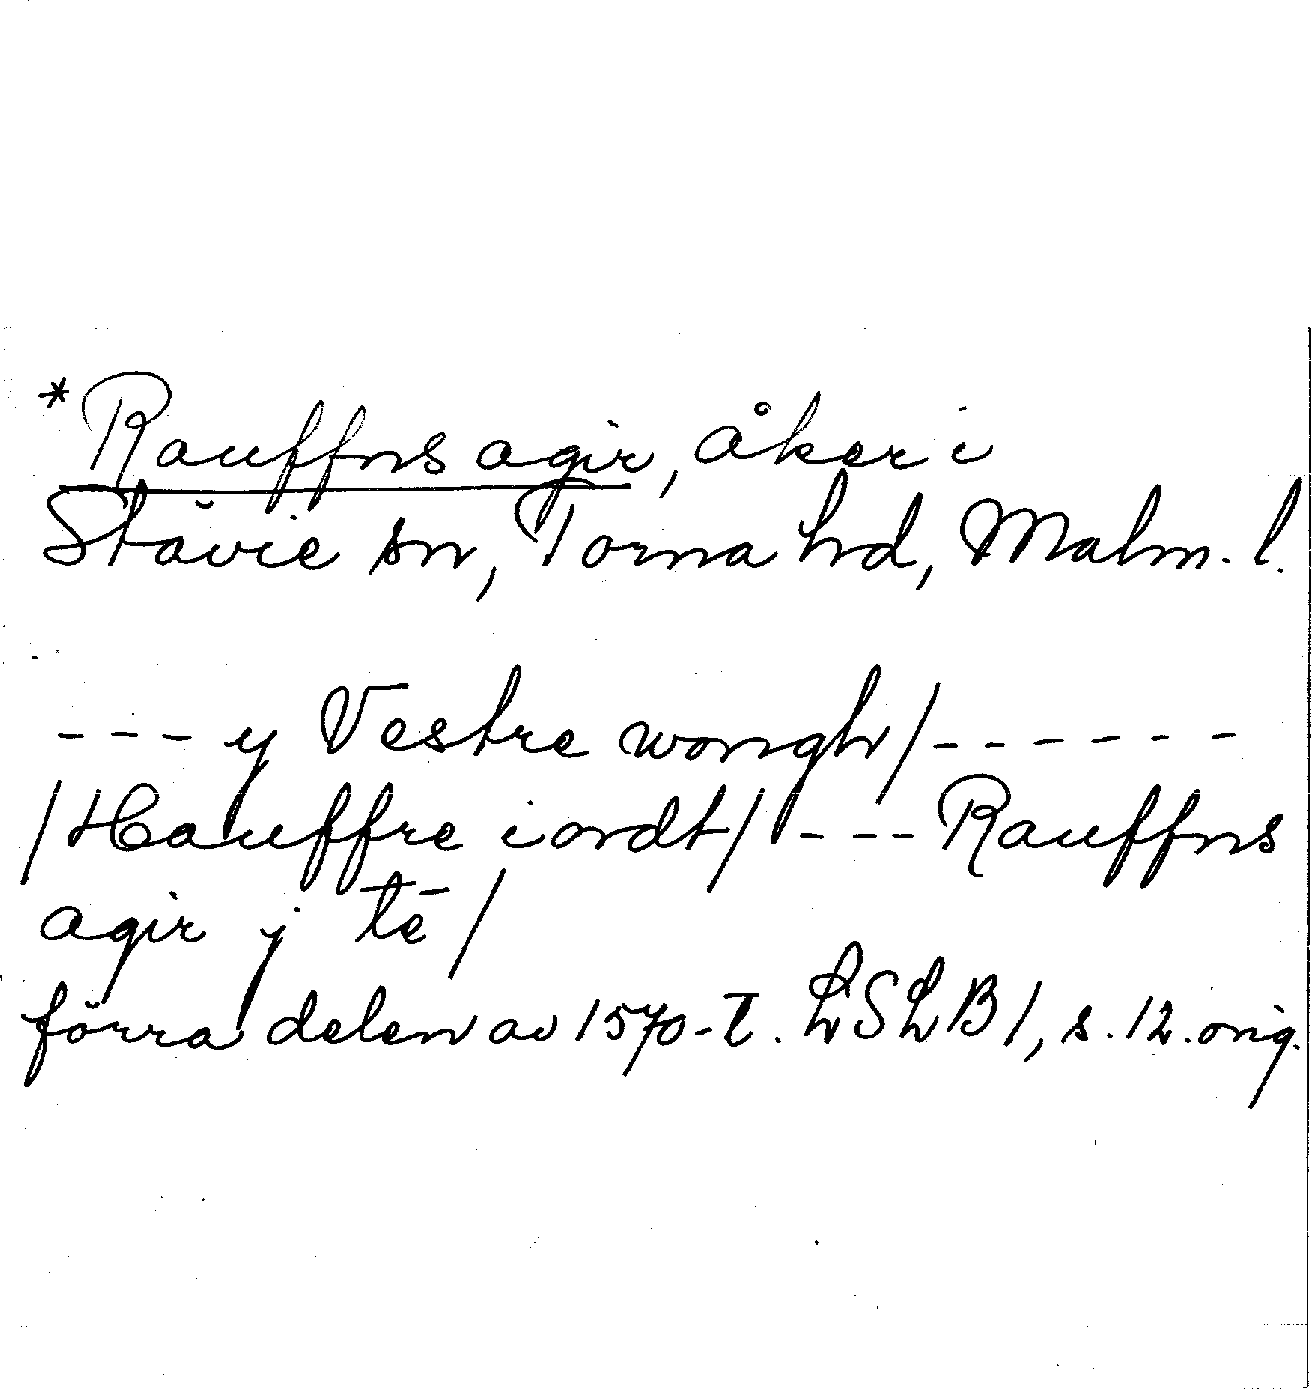 *Rauffns agir, åker i
Stävie sn, Torna hd, Malm. l.
--- y Vestre wongh/------
/Hauffre iordt/ --- Rauffns
agir j tē/
förra delen av 1570-t. LSLB1, s. 12. orig.